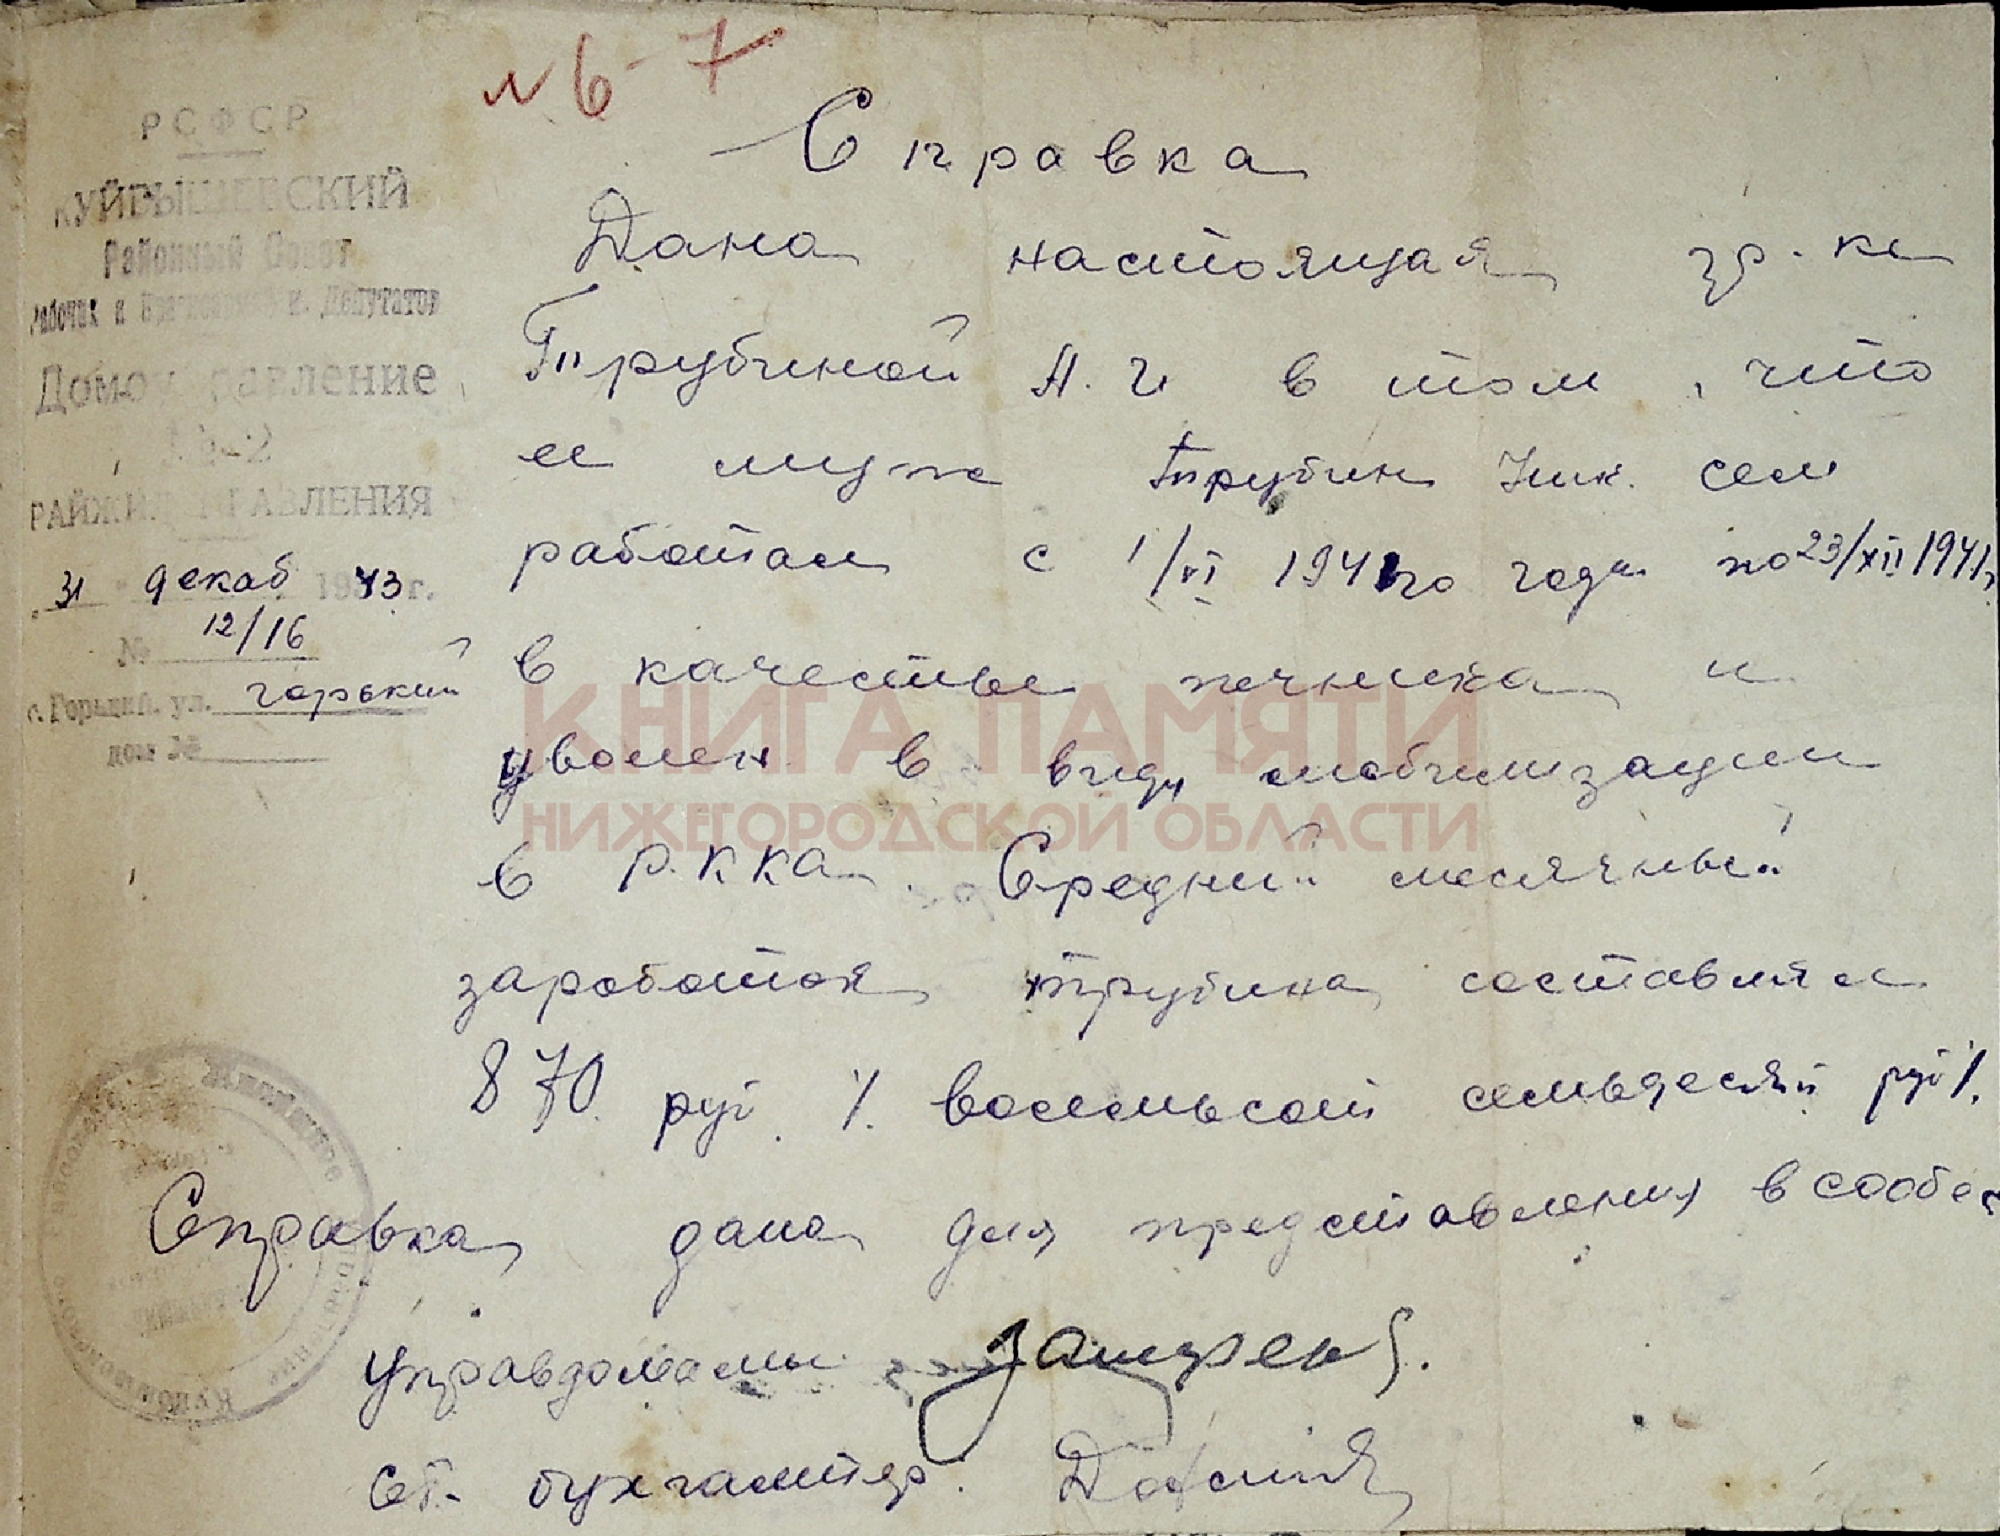 № 6-7
РСФСР
КУЙБЫШЕВСКИЙ
Районный Совет
Рабочих и Красноармей и. Депутатов
Домоуправление
№-2
РАЙЖИЛУПРАВЛЕНИЯ
31 декаб 1943 г.
№ 12/16
г. Горький, ул. горький
дом №
Справка
Дана настоящая гр. ке
Трубиной А. И в том, что
ее муж Трубин Ник. Сем
работал с 1/VI 1941го года по 23/XII 1941г
в качестве печника и
уволен в виду мобилизации
в Р.ККА. Средний месячный
заработок трубина составлял
870 руб. /. восемьсот семьдесят руб /.
Справка дана для представления в собес
Управдомами
Ст. бухгалтер.
КНИГА ПАМЯТИ
НИЖЕГОРОДСКОЙ ОБЛАСТИ